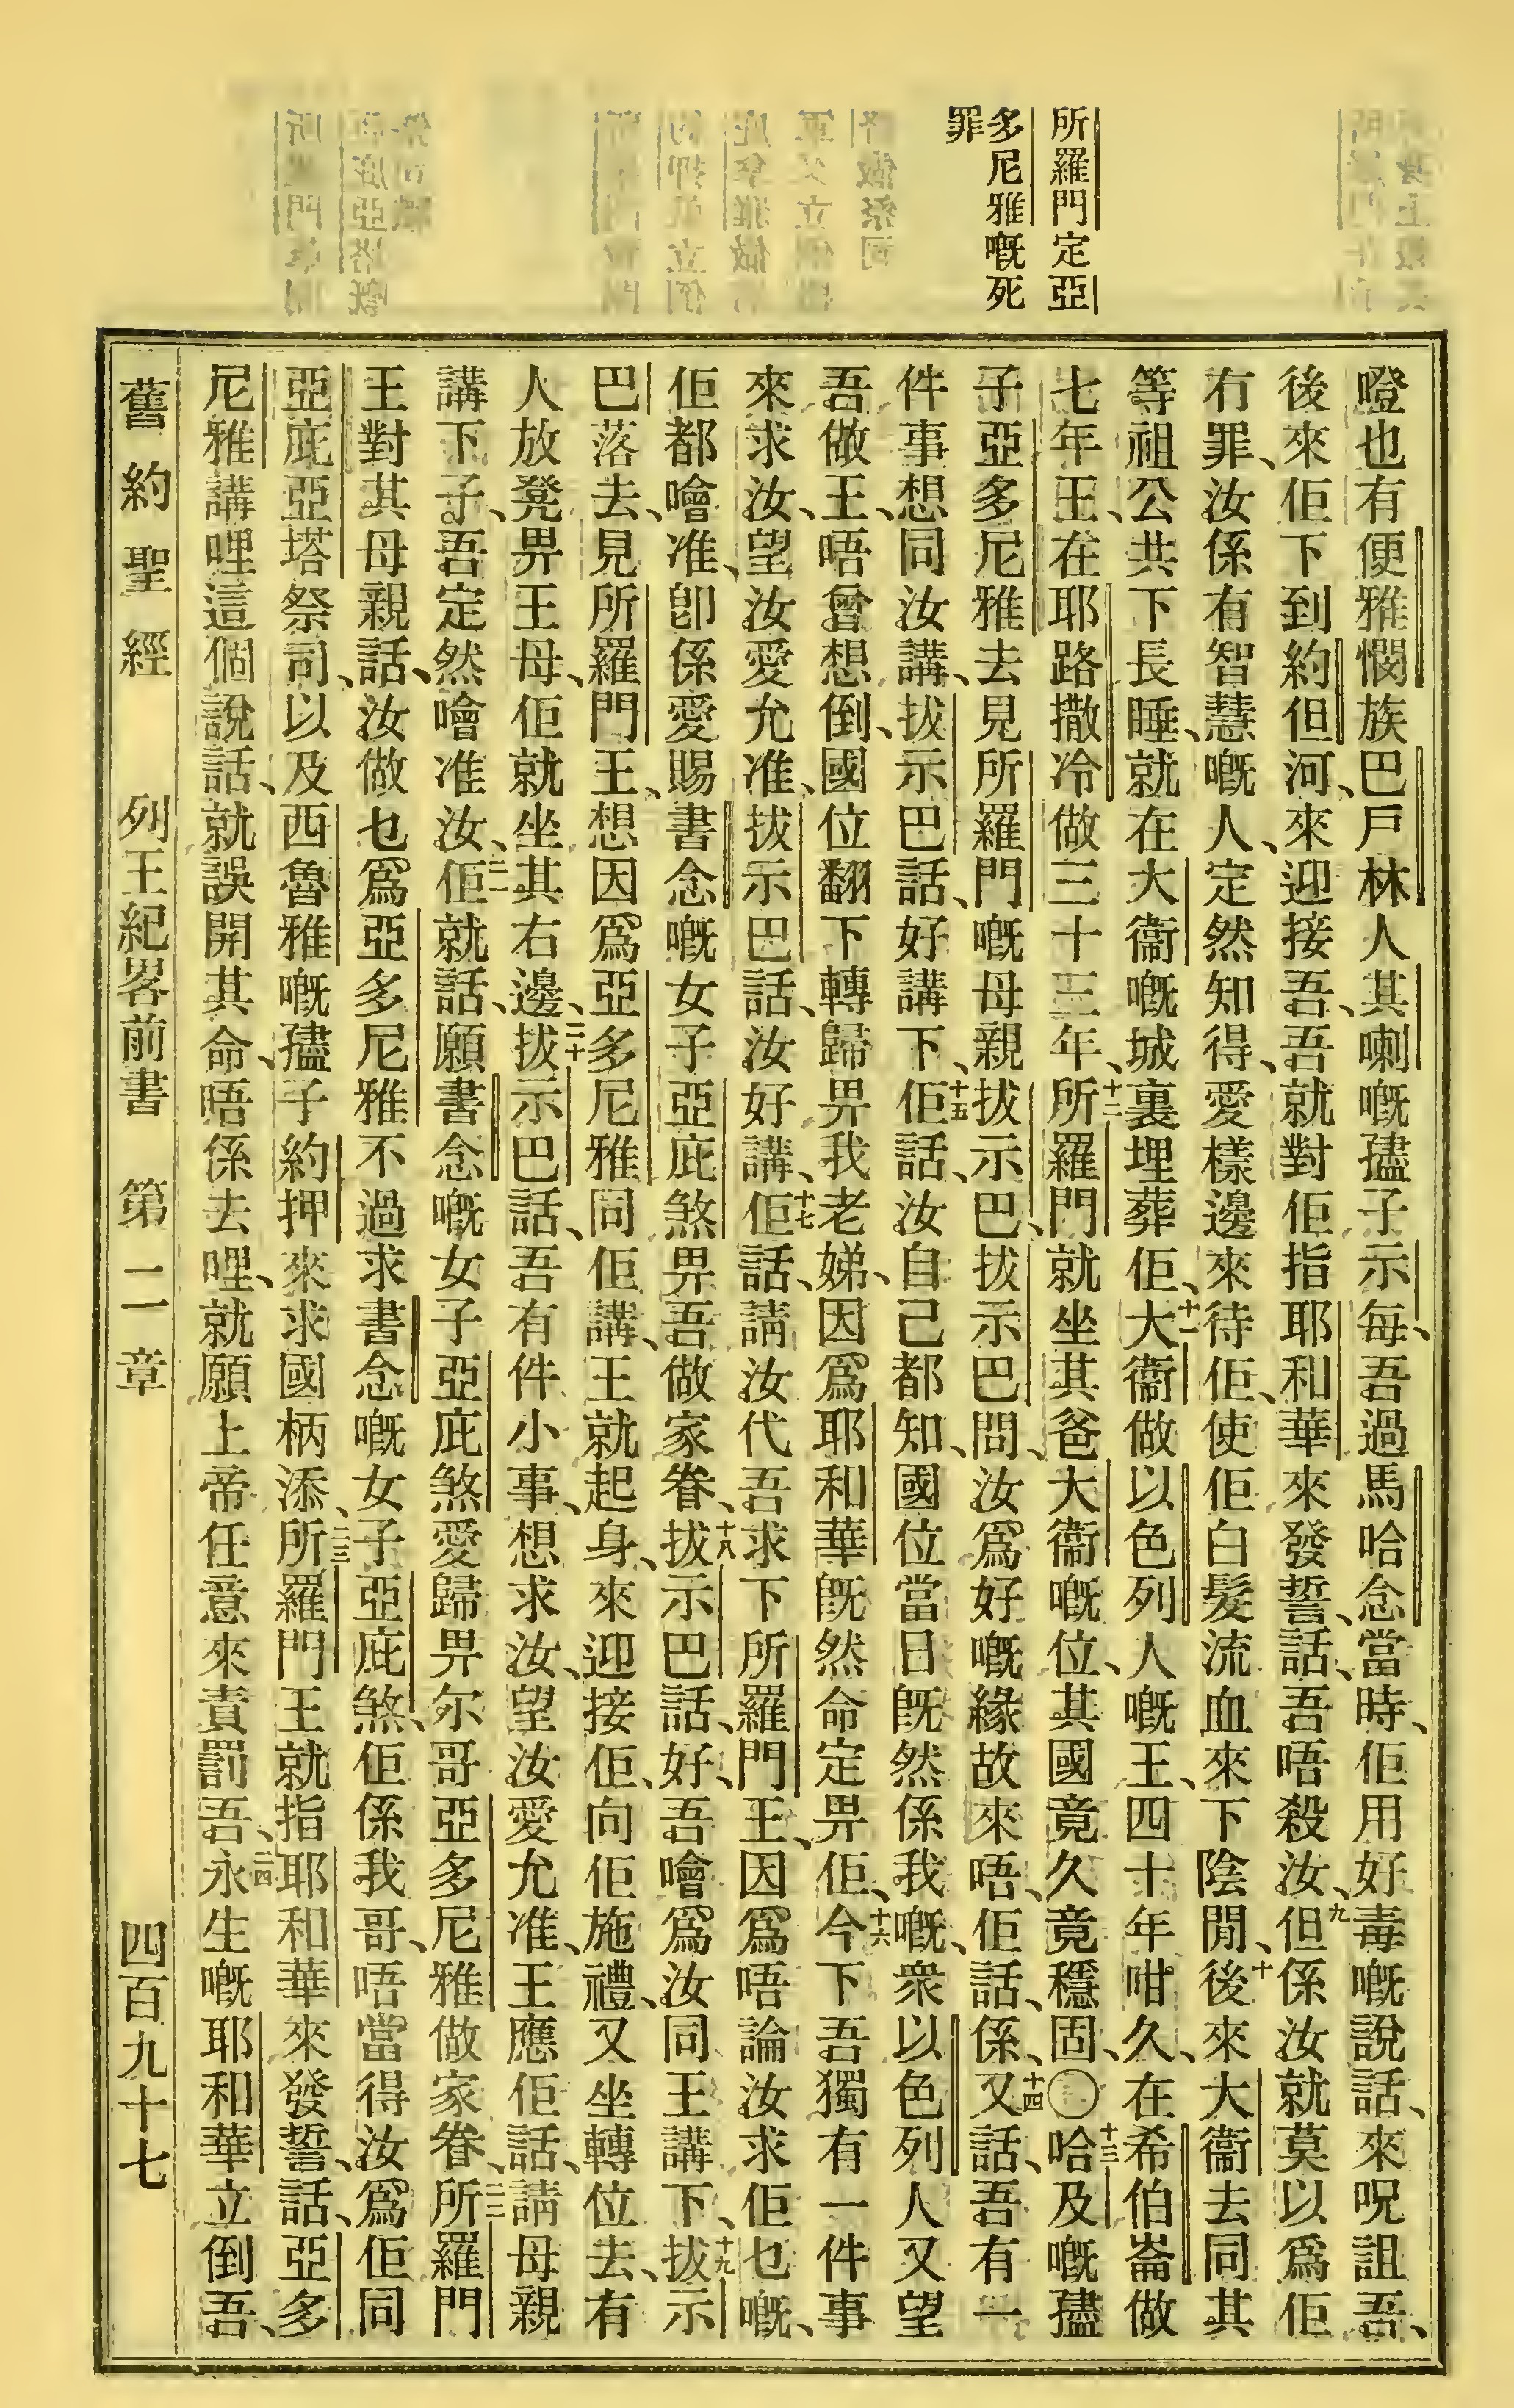 所羅門定亞
多尼雅嘅死
罪
噔也有便雅憫族巴戶林人其喇嘅𡥧子示每、吾過馬哈念當時、佢用好毒嘅說話、來呪詛吾、
後來佢下到約但河、來迎接吾、吾就對佢指耶和華來發誓、話、吾唔殺汝、九但係汝就莫以爲佢
冇罪、汝係有智慧嘅人、定然知得、愛樣邊來待佢、使佢白髮流血來下陰間、十後來大衞去同其
等祖公共下長睡、就在大衞嘅城裏埋葬佢、十一大衞做以色列人嘅王、四十年咁久、在希伯崙做
七年王、在耶路撒冷做三十三年、十二所羅門就坐其爸大衞嘅位、其國竟久竟穩固、〇十三哈及嘅𡥧
子亞多尼雅去見所羅門嘅母親拔示巴、拔示巴問、汝爲好嘅緣故來唔、佢話、係、十四又話、吾有一
件事想同汝講、拔示巴話、好講下、十五佢話、汝自己都知、國位當日旣然係我嘅、衆以色列人又望
吾做王、唔曾想倒、國位翻下轉歸畀我老娣、因爲耶和華旣然命定畀佢、十六今下吾獨有一件事
來求汝、望汝愛允准、拔示巴話、汝好講、十七佢話、請汝代吾求下所羅門王、因爲唔論汝求佢乜嘅、
佢都噲准、卽係愛賜書念嘅女子亞庇煞畀吾做家眷、十八拔示巴話、好、吾噲爲汝同王講下、十九拔示
巴落去、見所羅門王、想因爲亞多尼雅同佢講、王就起身、來迎接佢、向佢施禮、又坐轉位去、有
人放凳畀王母、佢就坐其右邊、二十拔示巴話、吾有件小事、想求汝、望汝愛允准、王應佢話、請母親
講下子、吾定然噲准汝、二一佢就話、願書念嘅女子亞庇煞愛歸畀尔哥亞多尼雅做家眷、二二所羅門
王對其母親話、汝做乜爲亞多尼雅不過求書念嘅女子亞庇煞、佢係我哥、唔當得汝爲佢同
亞庇亞塔祭司、以及西魯雅嘅𡥧子約押來求國柄添、二三所羅門王就指耶和華來發誓、話、亞多
尼雅講哩這個說話、就誤開其命、唔係去哩、就願上帝任意來責罰吾、二四永生嘅耶和華立倒吾、
舊約聖經　列王紀畧前書　第二章　四百九十七